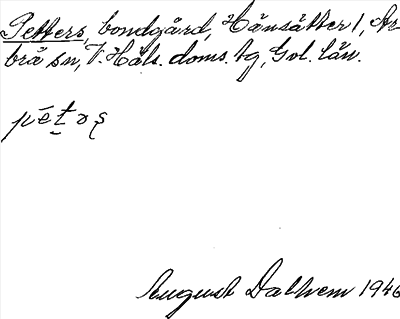 Petters, bondgård, Hänsätter 1, Ar-
brå sn, V. Häls. doms. tg, Gvl. län.
August Dalhem 1946